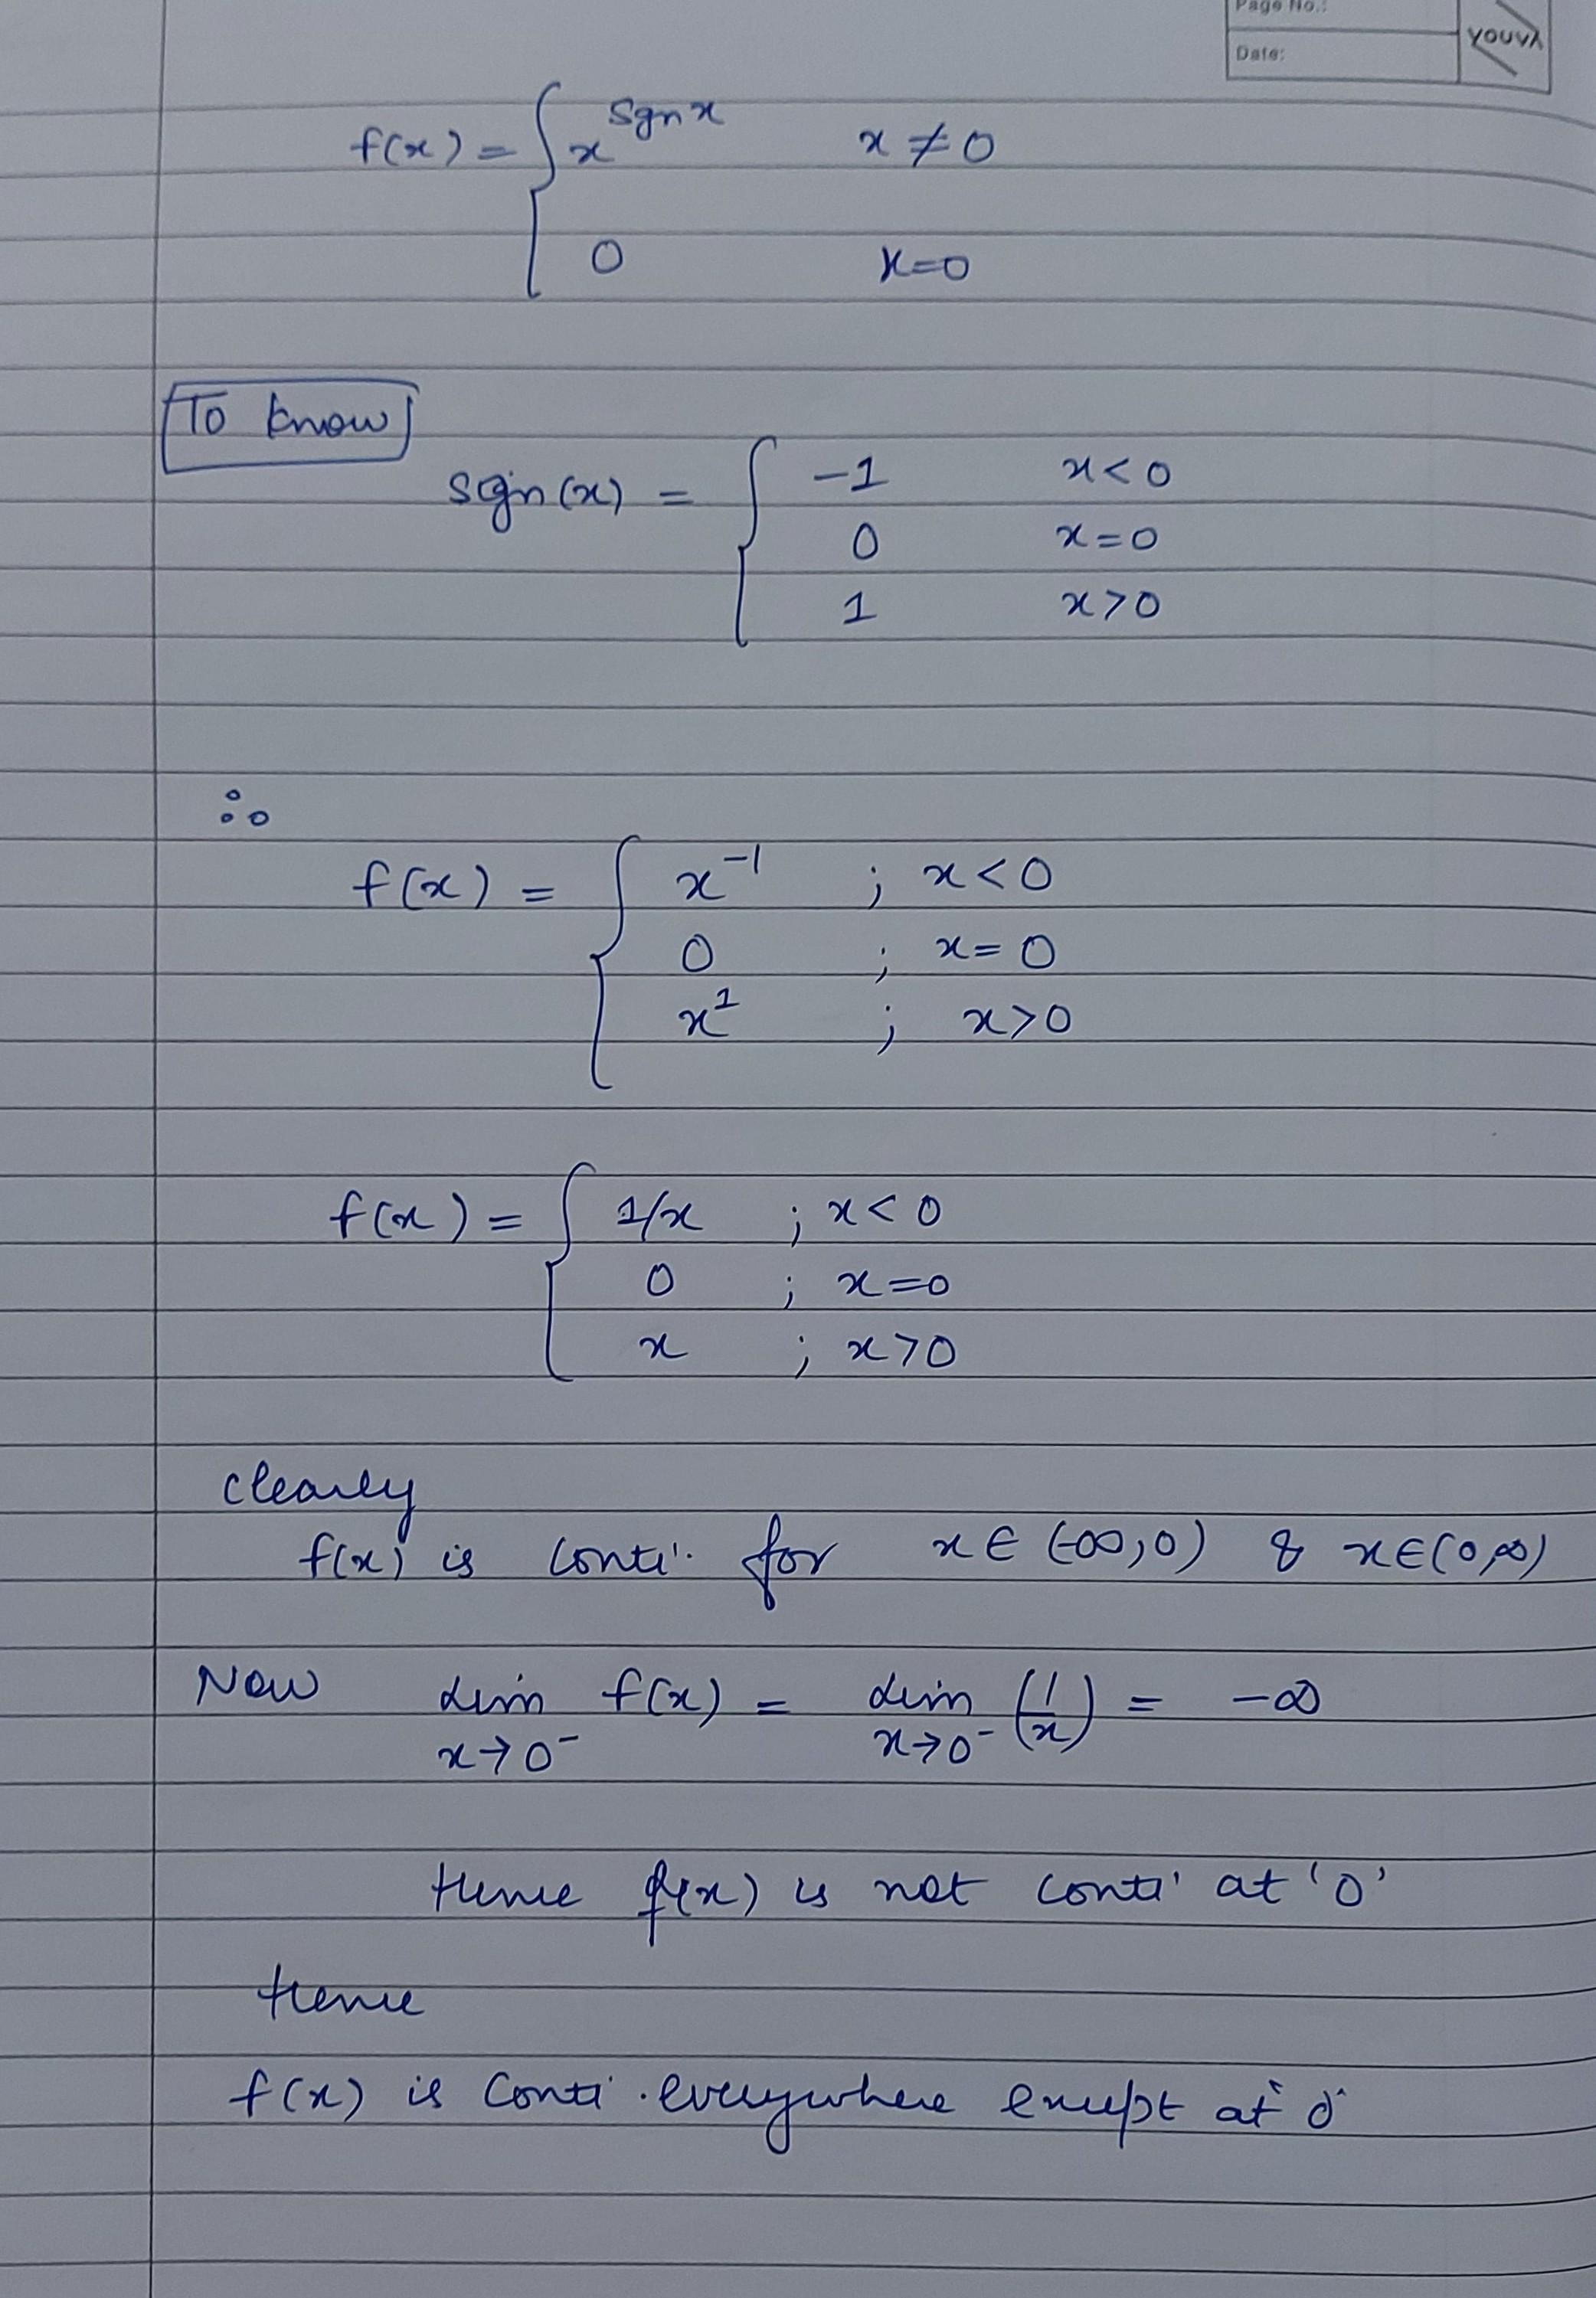 Page No.:
Date:
YOUVA
f(x) = { x^sgn x    x ≠ 0
0    x=0
To know
sgn(x) = { -1    x<0
0    x=0
1    x>0
∴
f(x) = { x^-1 ; x<0
0 ; x=0
x^1 ; x>0
f(x) = { 1/x ; x<0
0 ; x=0
x ; x>0
clearly
f(x) is conti. for x∈(-∞,0) & x∈(0,∞)
Now lim x→0⁻ f(x) = lim x→0⁻ (1/x) = -∞
Hence f(x) is not conti' at '0'
Hence
f(x) is conti. everywhere except at '0'